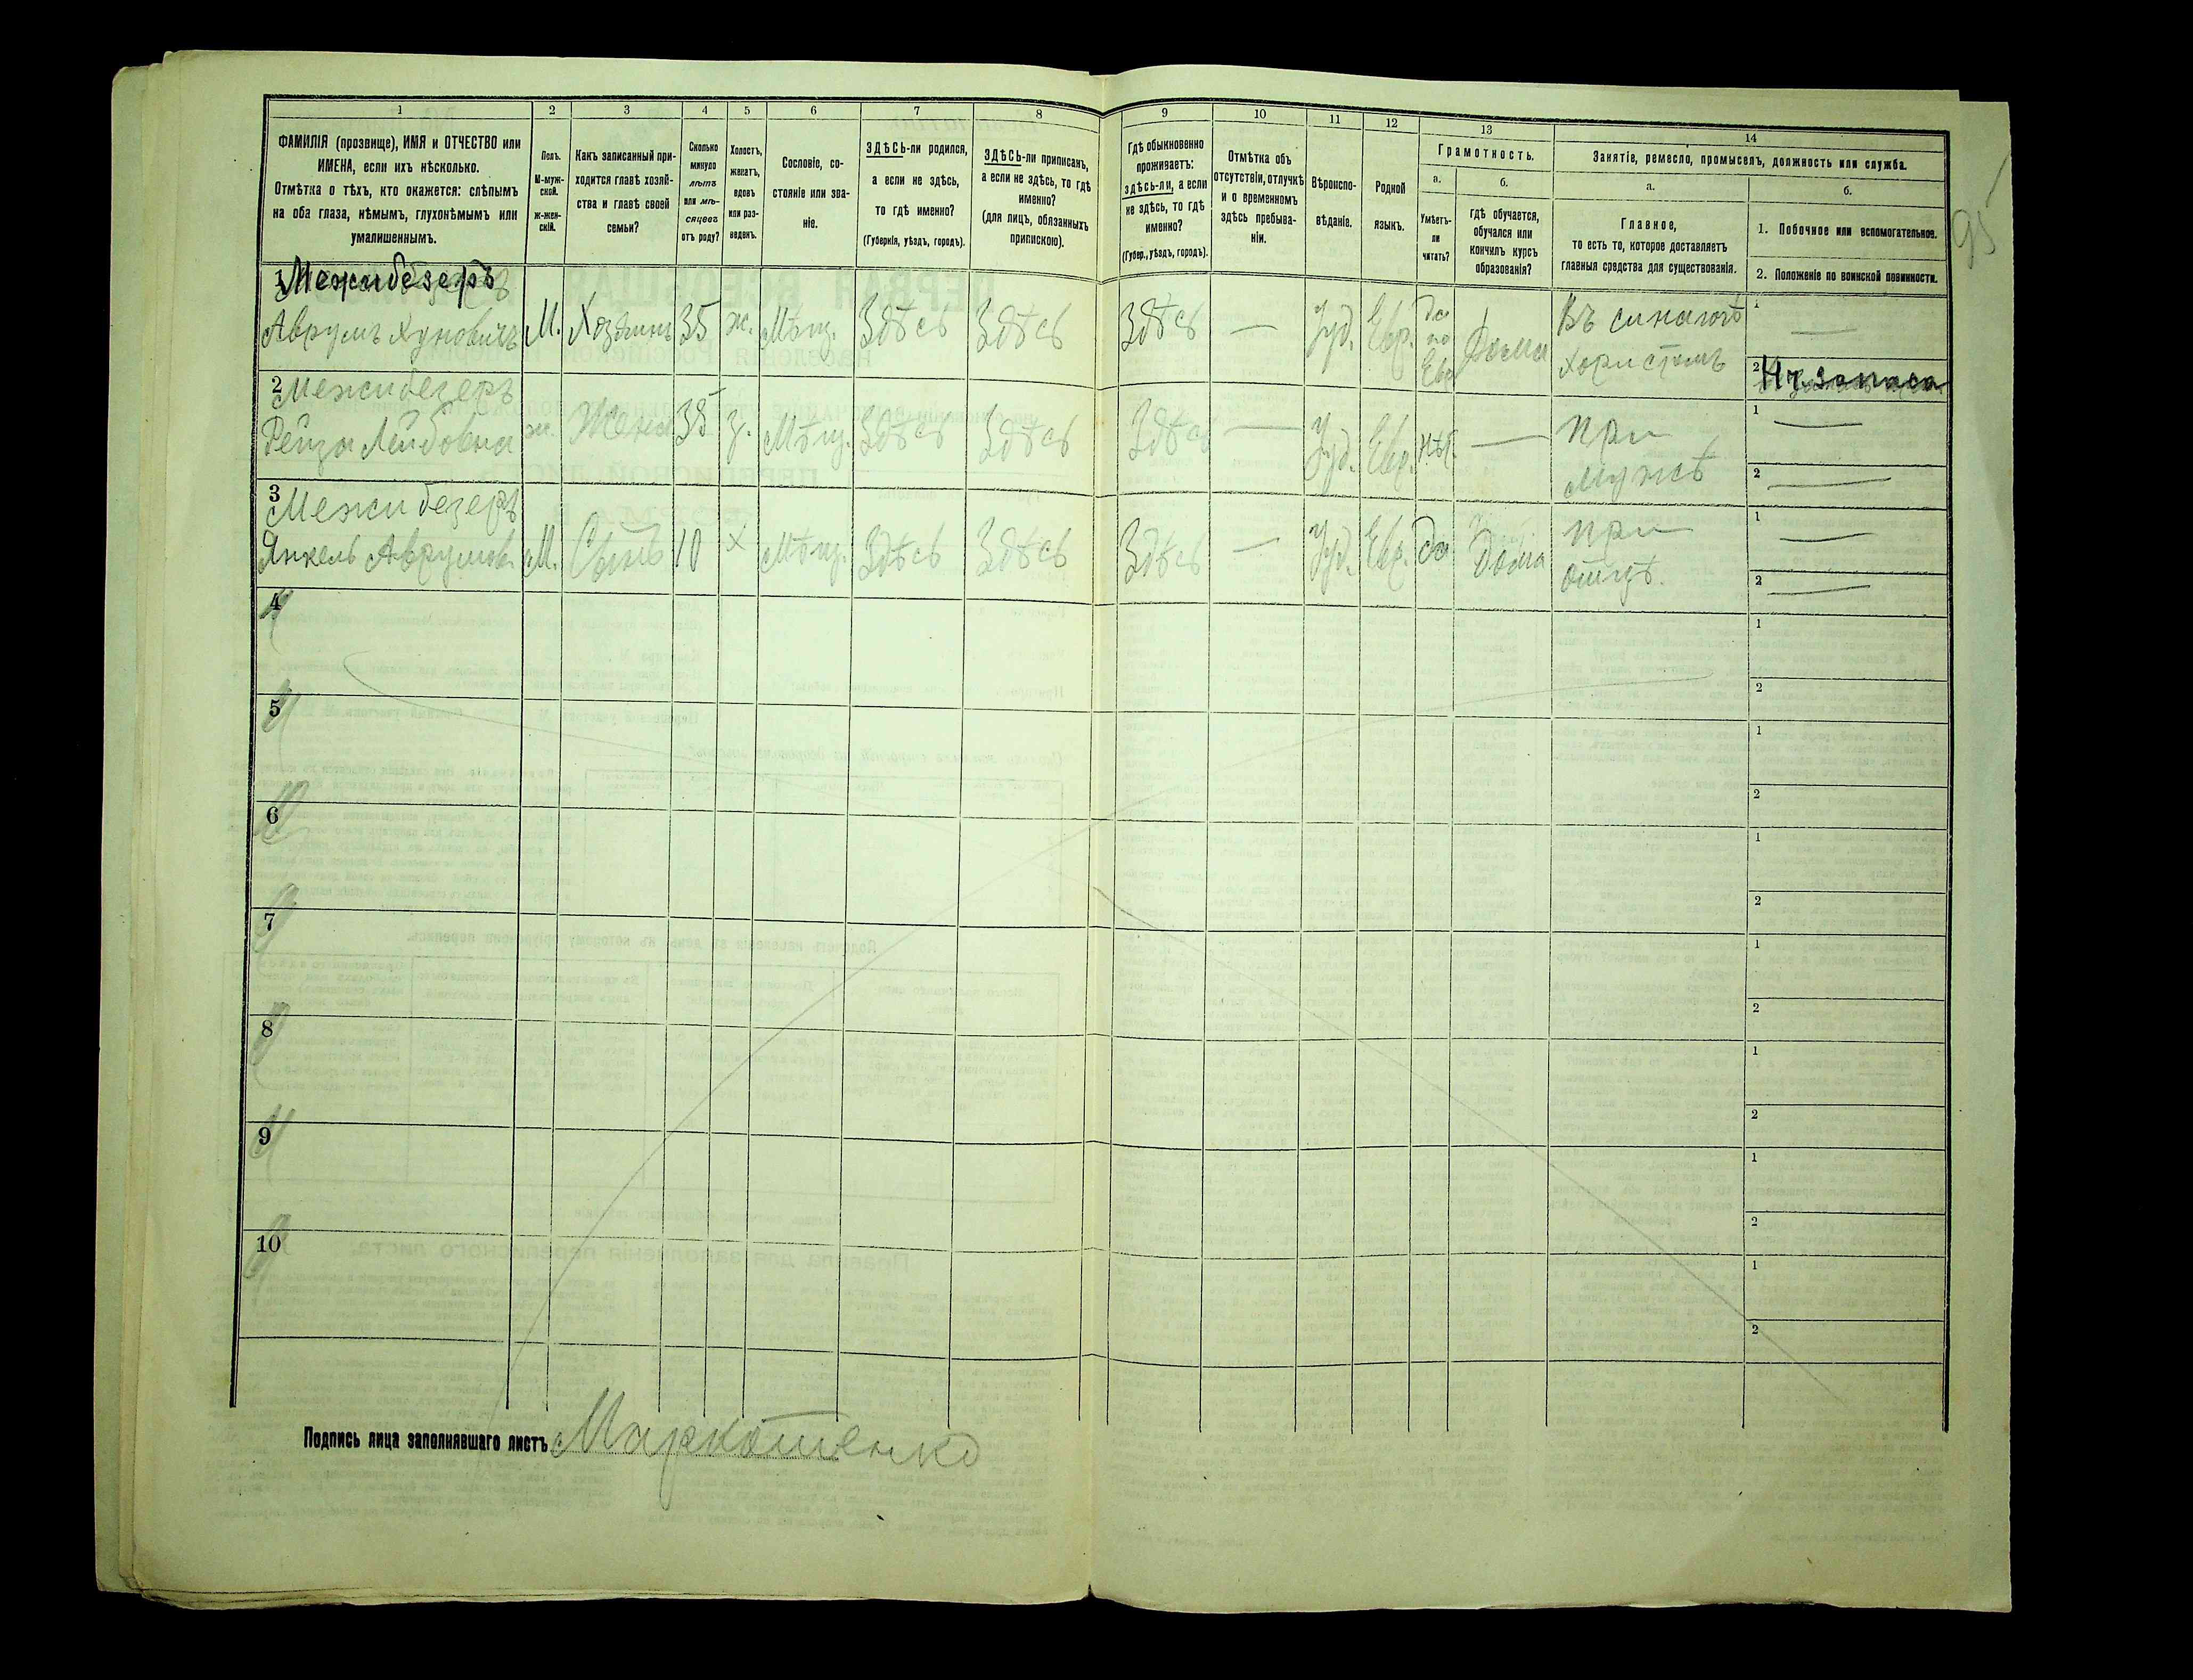 1 2 3 4 5 6 7 8 9 10 11 12 13 14
ФАМИЛІЯ (прозвище), ИМЯ и ОТЧЕСТВО или
ИМЕНА, если ихъ нѣсколько.
Отмѣтка о тѣхъ, кто окажется: слѣпымъ
на оба глаза, нѣмымъ, глухонѣмымъ или
умалишеннымъ.
Полъ.
М-муж-
ской.
ж-жен-
скій.
Какъ записанный при-
ходится главѣ хозяй-
ства и главѣ своей
семьи?
Сколько
минуло
лѣтъ
или мѣ-
сяцевъ
отъ роду?
Холостъ,
женатъ,
вдовъ
или раз-
веденъ.
Сословіе, со-
стояніе или зва-
ніе.
ЗДѢСЬ-ли родился,
а если не здѣсь,
то гдѣ именно?
(Губернія, уѣздъ, городъ).
ЗДѢСЬ-ли приписанъ,
а если не здѣсь, то гдѣ
именно?
(для лицъ, обязанныхъ
припискою).
Гдѣ обыкновенно
проживаетъ:
здѣсь-ли, а если
не здѣсь, то гдѣ
именно?
(Губер., уѣздъ, городъ).
Отмѣтка объ
отсутствіи, отлучкѣ
и о временномъ
здѣсь пребыва-
ніи.
Вѣроиспо-
вѣданіе.
Родной
языкъ.
Грамотность.
а.
Умѣетъ-
ли
читать?
б.
гдѣ обучается,
обучался или
кончилъ курсъ
образованія?
Занятіе, ремесло, промыселъ, должность или служба.
а.
Главное,
то есть то, которое доставляетъ
главныя средства для существованія.
б.
1. Побочное или вспомогательное.
2. Положеніе по воинской повинности.
95
1 Межибезеръ
Аврумъ Хуновичъ М. Хозяинъ 35 ж. Мѣщ. Здѣсь Здѣсь Здѣсь — Іуд. Евр. да по Евр Дома Въ синагогѣ хористомъ 1 —
2 Нч. запаса
2 Межибезеръ
Рейза Лейбовна ж. Жена 35 з. Мѣщ. Здѣсь Здѣсь Здѣсь — Іуд. Евр. нѣт. — при мужѣ 1 —
2 —
3 Межибезеръ
Янкель Аврумов. М. Сынъ 10 х Мѣщ. Здѣсь Здѣсь Здѣсь — Іуд. Евр. да Дома при отцѣ. 1 —
2 —
4 1
2
5 1
2
6 1
2
7 1
2
8 1
2
9 1
2
10 1
2
Подпись лица заполнявшаго листъ Маркотенко